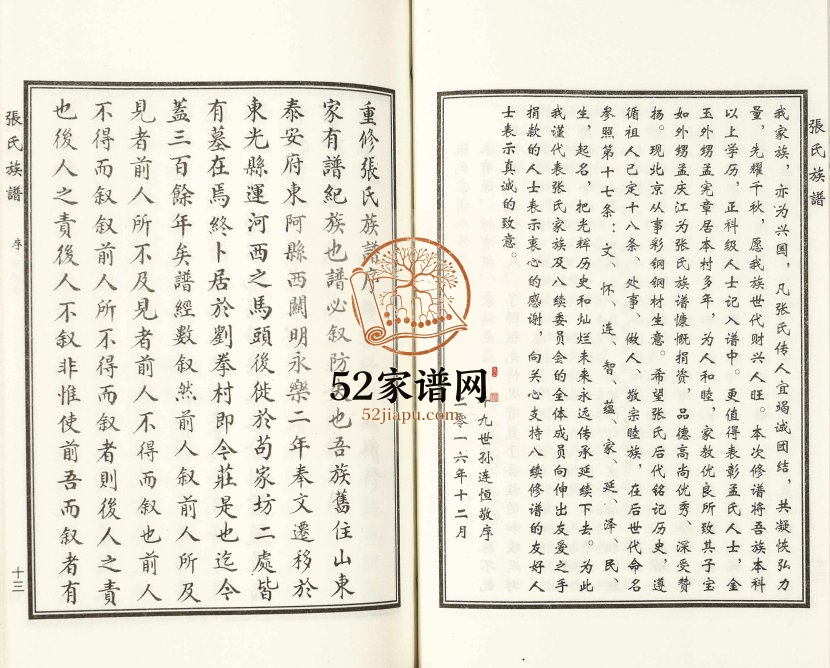 張氏族譜
我家族，亦为兴国，凡张氏传人宜竭诚团结，共凝恢弘力
量，先耀千秋，愿我族世代财兴人旺。本次修谱将吾族本科
以上学历，正科级人士记入谱中。更值得表彰孟氏人士，金
玉外甥孟宪章居本村多年，为人和睦，家教优良所致其子宝
如外甥孟庆江为张氏族谱慷慨捐资，品德高尚优秀、深受赞
扬。现北京从事彩钢钢材生意。希望张氏后代铭记历史，遵
循祖人已定十八条、处事、做人、敬宗睦族，在后世代命名
参照第十七条：文、怀、连、智、蕴、家、延、泽、民、
生，起名，把光辉历史和灿烂未来永远传承延续下去。为此
我谨代表张氏家族及八续委员会的全体成员向伸出友爱之手
捐款的人士表示衷心的感谢，向关心支持八续修谱的友好人
士表示真诚的致意。
九世孙连恒敬序
二零一六年十二月
重修張氏族譜序
家有譜紀族也譜必叙防也吾族舊住山東
泰安府東阿縣西關明永樂二年奉文遷移於
東光縣運河西之馬頭後徙於苟家坊二處皆
有墓在焉終卜居於劉拳村即今莊是也迄今
蓋三百餘年矣譜經數叙然前人叙前人所及
見者前人所不及見者前人不得而叙也前人
不得而叙叙前人所不得而叙者則後人之責
也後人之責後人不叙非惟使前吾而叙者有
張氏族譜
序
十三
52家谱网
52jiapu.com